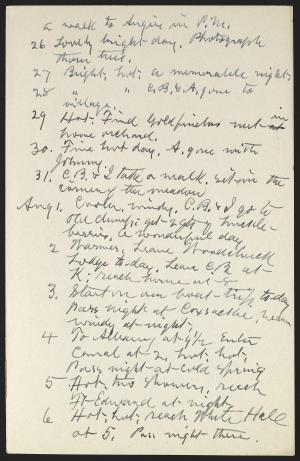 a walk to Angies in P.M.
26 Lovely bright day. Photograph
thorn tree.
27 Bright, hot; a memorable night.
28 " " C.B. & A. gone to
village.
29 Hot. Find Goldfinches nest in
home orchard.
30. Fine hot day. A. gone with
Johnny.
31. C.B. & I take a walk, sit in the
corner of the meadow.
Aug 1. Cooler, windy. C.B. & I go to
old clump; get 2 qts of huckle-
berries. A wonderful day.
2 Warmer, Leave Woodchuck
Lodge to-day. Leave C.B. at
K; reach home at 8
3. Start on our boat-trip to-day
Pass night at Coxsackie, warm
windy at night.
4 To Albany at 9½ Enter
Canal at 2, hot, hot,
Pass night at Cold Spring
5 Hot, two showers, reach
Ft Edward at night,
6 Hot, hot, reach White Hall
at 5. Pass night there.